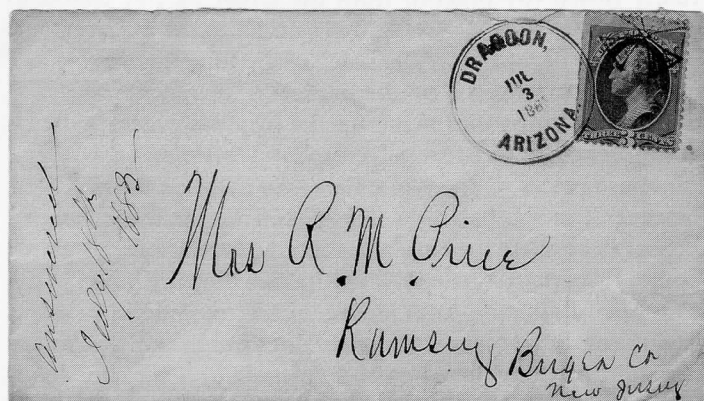 DRAGOON,
JUL
3
188
ARIZONA.
answered
July 18th 1883
Mrs R. M. Price
Ramsey Bergen Co
New Jersey